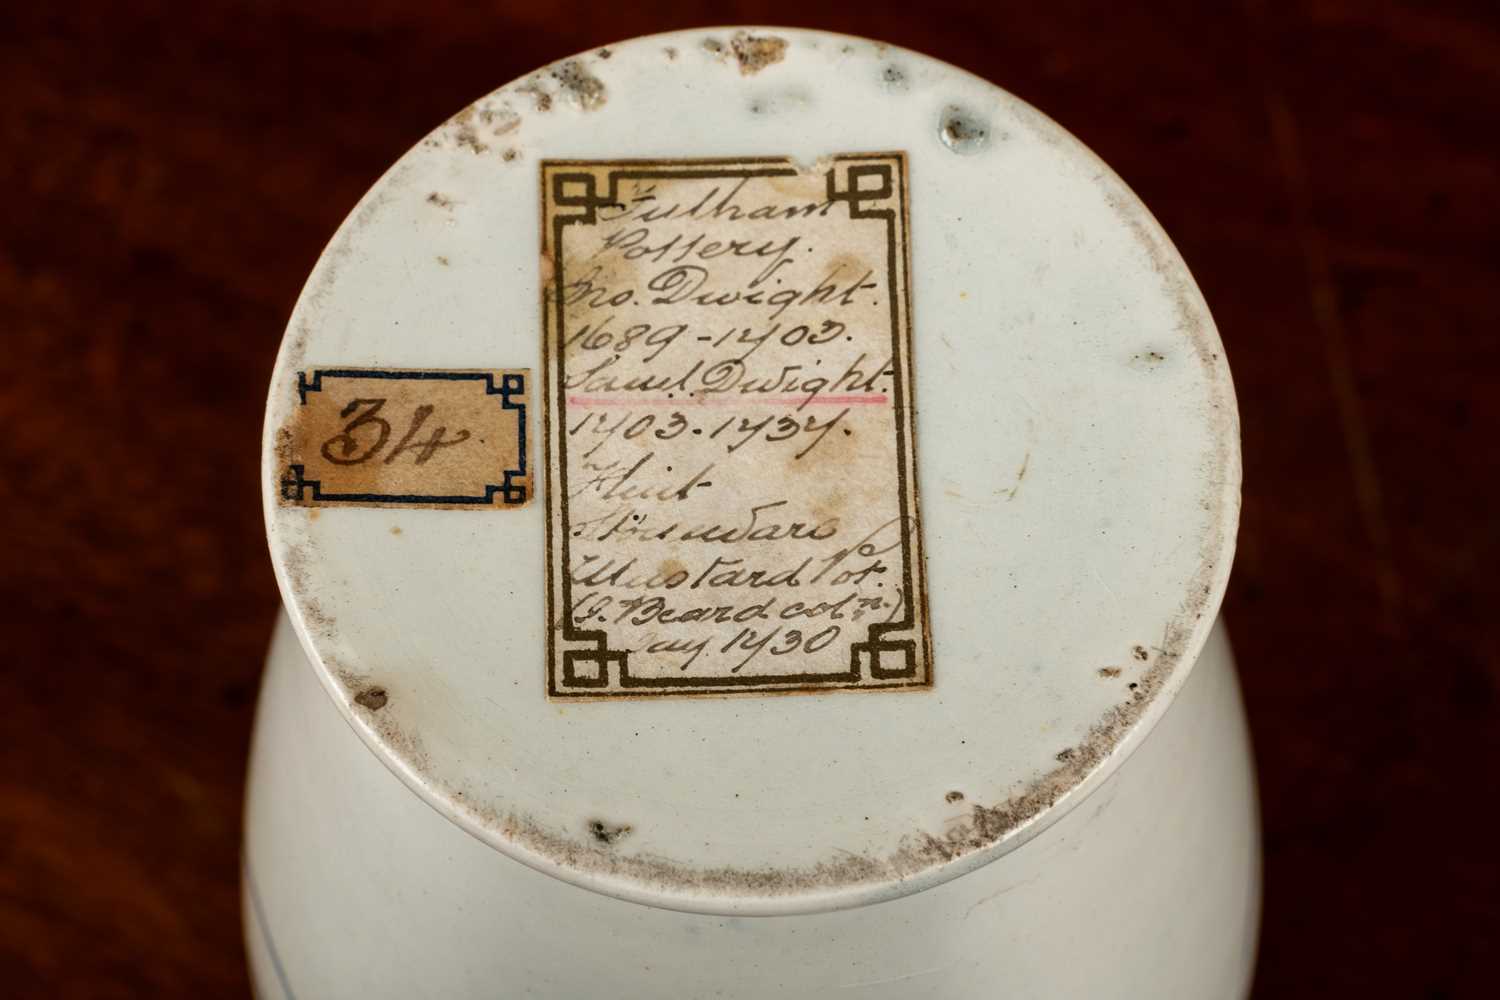 34
Fulham
Pottery.
Jno. Dwight.
1689-1703.
Saml. Dwight.
1703-1737.
Flint
Stoneware
Mustard Pot.
(J. Beard coln.)
Jay. 1730